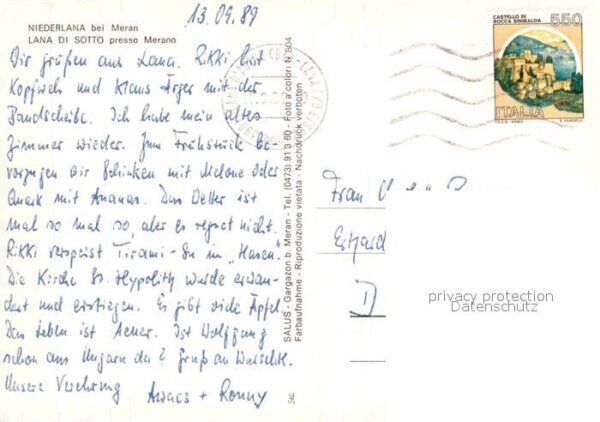 13.09.89
NIEDERLANA bei Meran
LANA DI SOTTO presso Merano
Wir grüßen aus Lana. Rikki hat
Kopfweh und Klaus Ärger mit der
Bandscheibe. Ich habe mein altes
Zimmer wieder. Zum Frühstück be-
vorzugen wir Schinken mit Melone oder
Quark mit Ananas. Das Wetter ist
mal so mal so, aber es regnet nicht.
Rikki verspeist Tirami-Su im "Hasen".
Die Kirche St. Hypolyth wurde erwan-
dert und erstiegen. Es gibt viele Äpfel.
Das Leben ist schön. Ist Wolfgang
schon aus Ungarn da? Gruß an
Unsere Verehrung + Ronny
SALUS - Gargazon b. Meran - Tel. (0473) 913 60 - Foto a colori: N 804
Farbaufnahme - Riproduzione vietata - Nachdruck verboten
CASTELLO DI
ROCCA SINIBALDA
550
ITALIA
Frau
D
privacy protection
Datenschutz